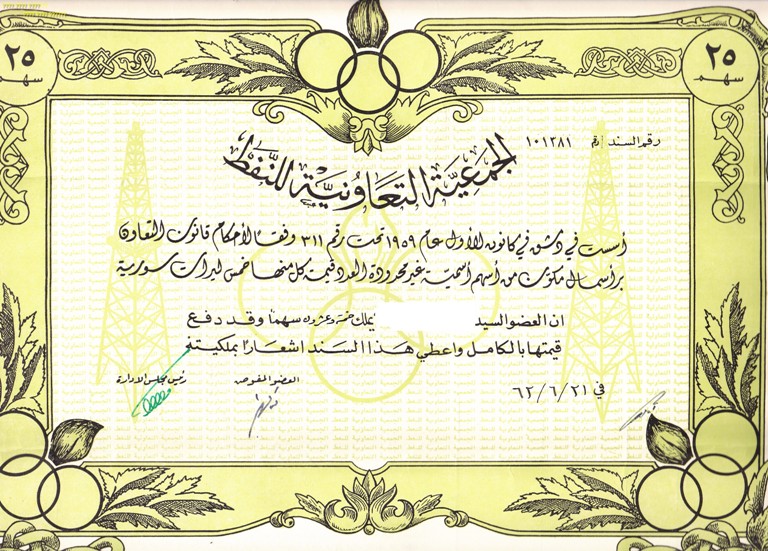 ٢٥
سهم
٢٥
سهم
رقم السند رقم ١٠١٣٨١
الجمعيّة التعاونيّة للنّفط
أسست في دمشق في كانون الأول عام ١٩٥٩ تحت رقم ٣١١ وفقًا لأحكام قانون التعاون
برأسمال مكوّن من أسهم أسميّة غير محدودة العدد قيمة كل منها خمس ليرات سورية
ان العضو السيد يملك خمسة وعشرون سهمًا وقد دفع
قيمتها بالكامل واعطي هذا السند اشعارًا بملكيته
العضو المفوض
رئيس مجلس الادارة
في ٢١/٦/٦٢
٢٥
سهم
٢٥
سهم